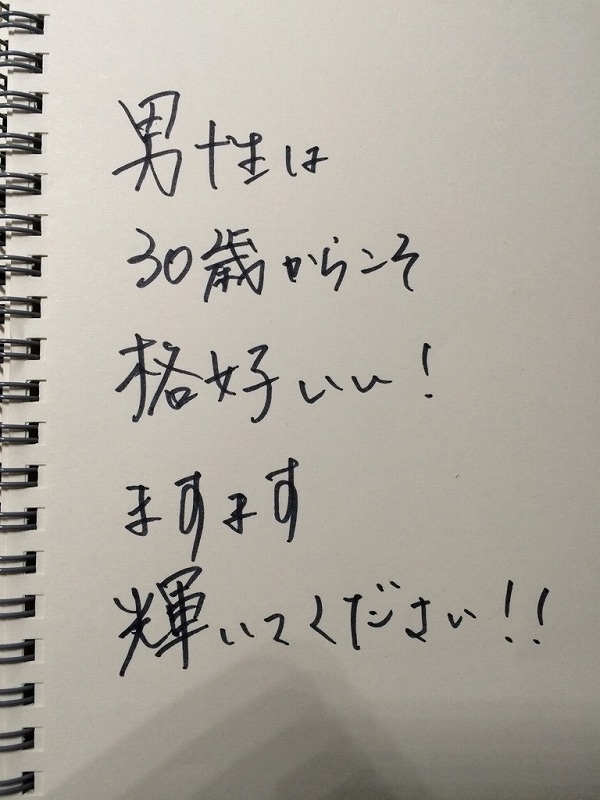 男性は
30歳からこそ
格好いい!
ますます
輝いてください!!